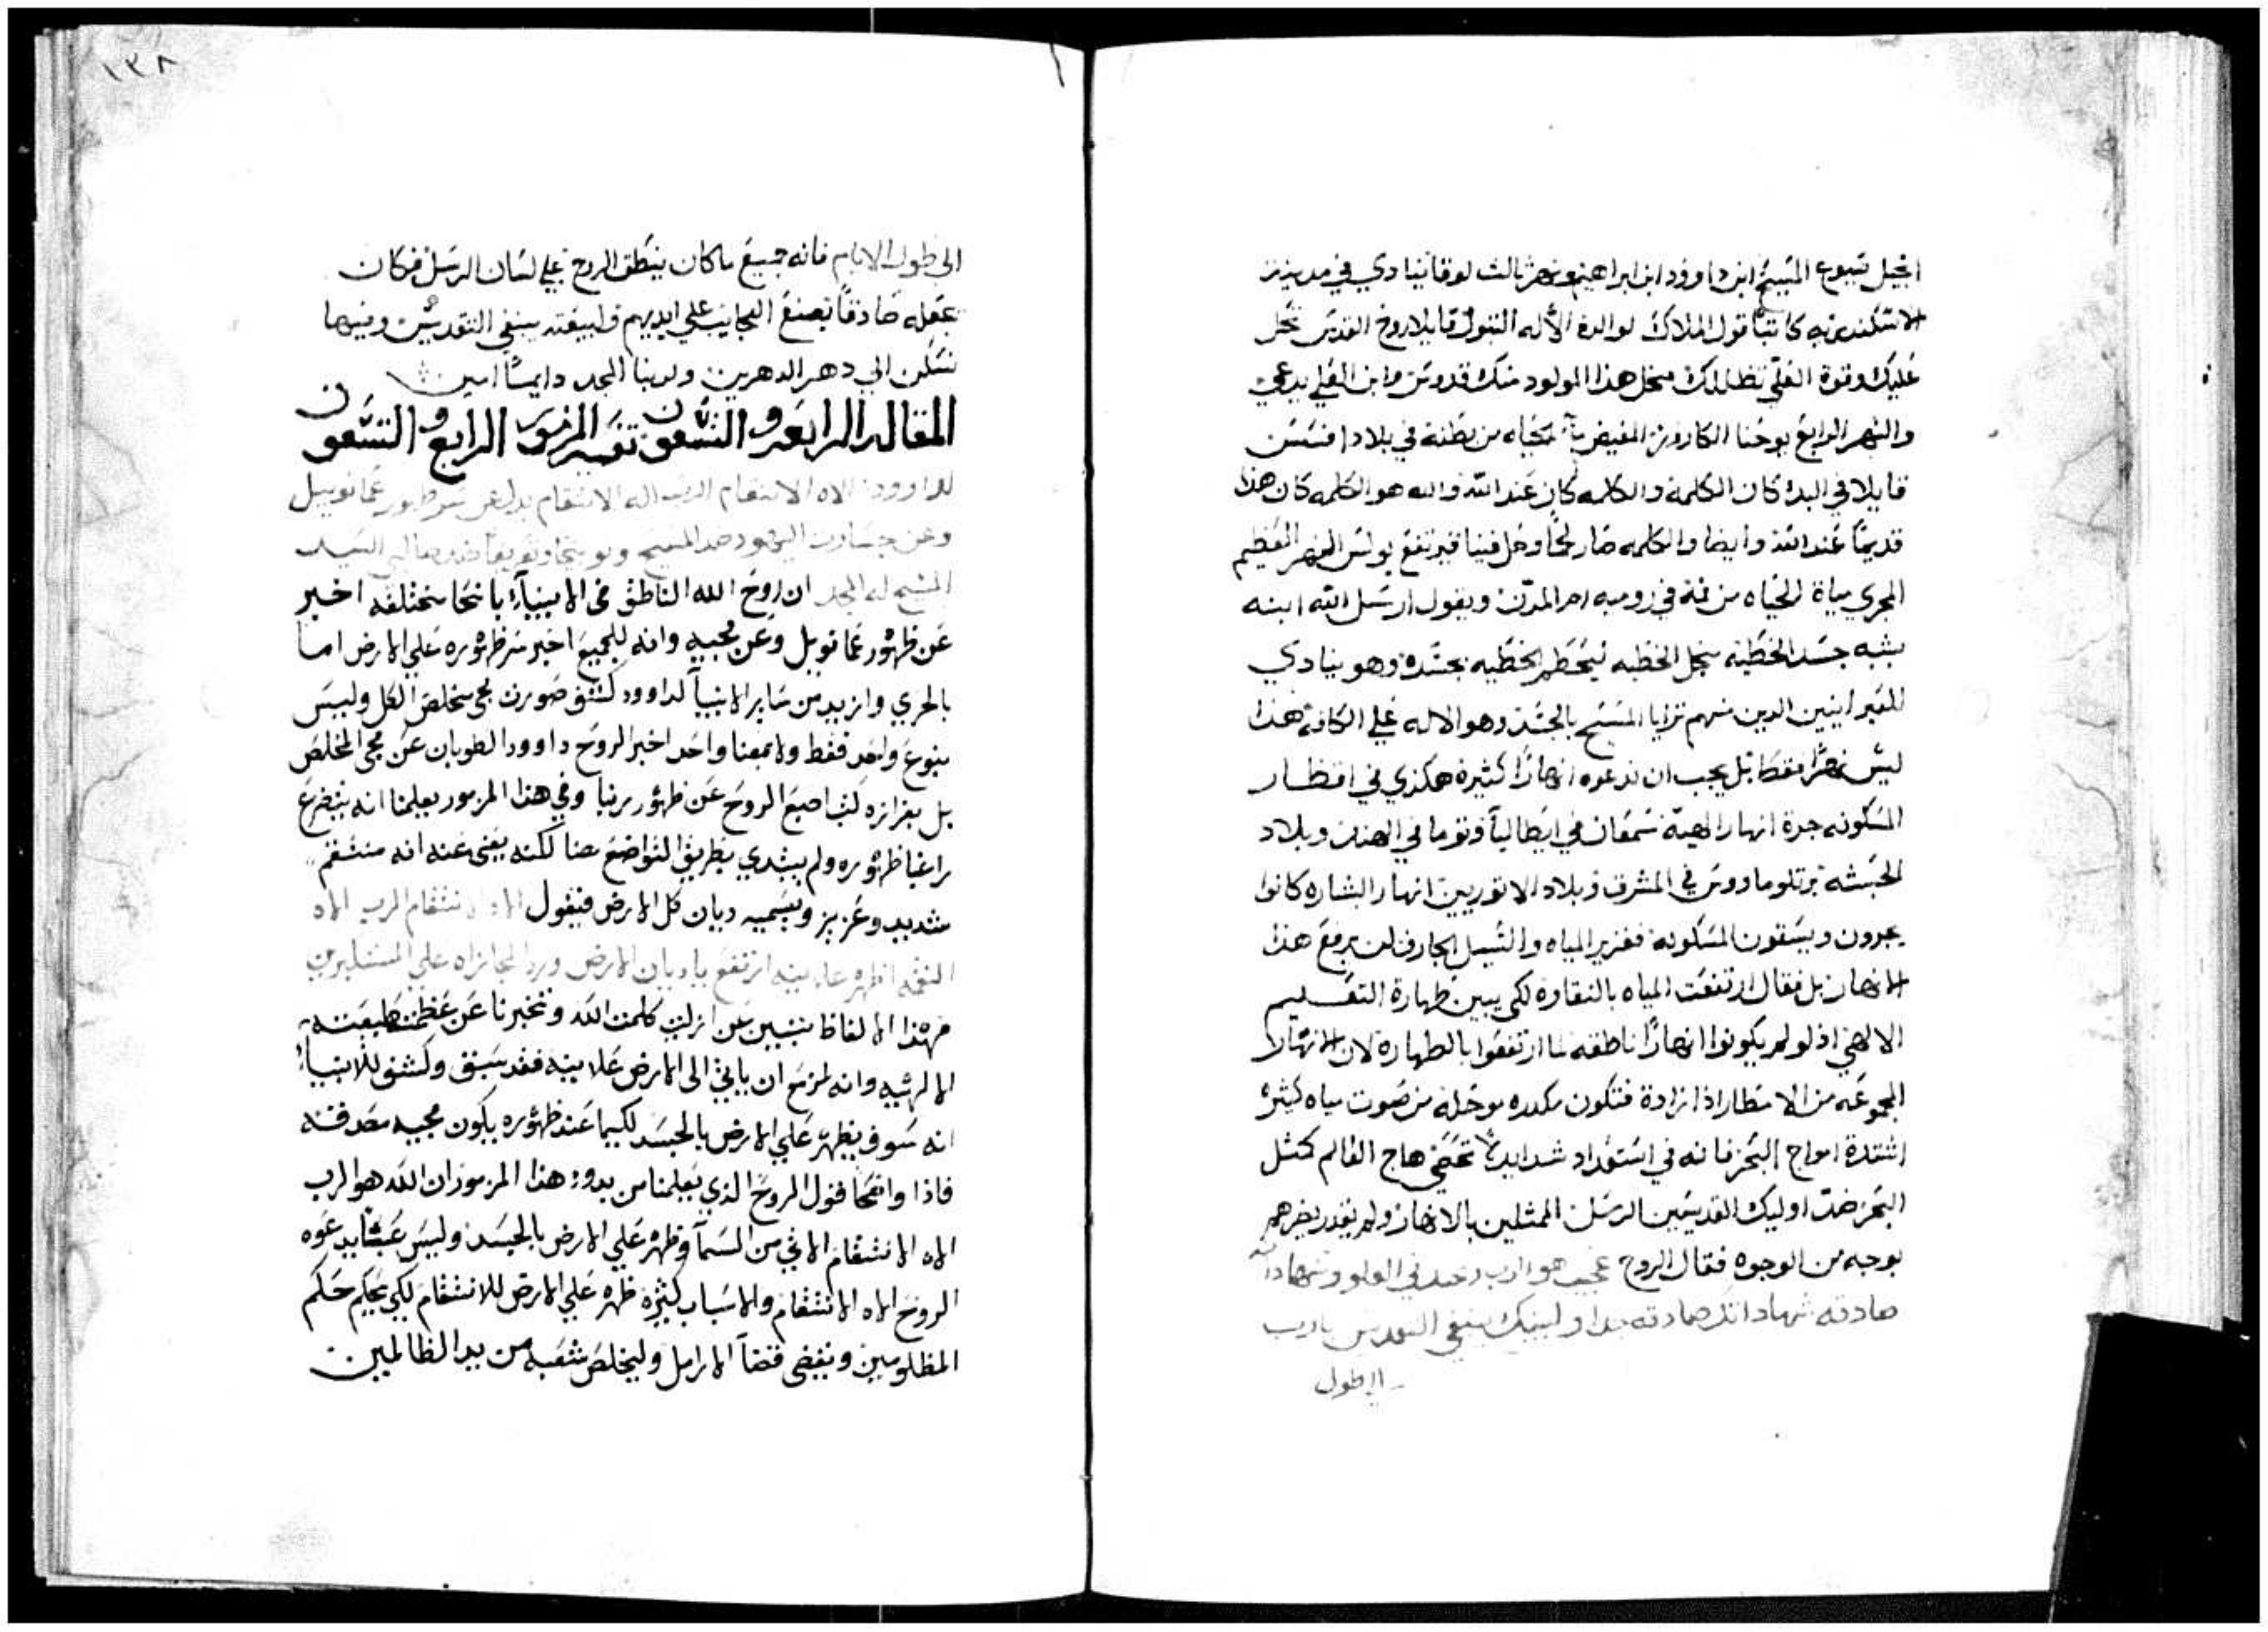 انجيل يسوع المسيح ابن داوود ابن ابراهيم ونهر ثالث لوقا ينادي في مدينة
الاسكندريه كاتباً قول الملاك لوالدة الأله البتول قايلا روح القدس تحل
عليك وقوة العلي تظللك منجل هذا المولود منك قدوس وابن العلي يدعي
والنهر الرابع يوحنا الكاروز المفيض مآ الحياه من بطنه في بلاد افسس
قايلا في البدء كان الكلمة والكلمه كان عند الله والله هو الكلمه كان هذا
قديماً عند الله وأيضا والكلمه صار لحماً وحل فينا بولس النهر العظيم
المجري مياة الحياه من فمه في روميه ام المدن ويقول ارسل الله ابنه
بشبه جسد الخطية منجل الخطيه ليحطم الخطيه بجسده وهو ينادي
للعبرانيين الدين منهم ترايا المسيح بالجسد وهو الاله علي الكافة هذا
ليس نهراً فقط بل يجب ان ندعوه انهاراً كثيرة هكذي في اقطار
المسكونه جرة انهار الهية سمعان في ايطاليا وتوما في الهند وبلاد
الحبشه برتلوما ودوس في المشرق وبلاد الاتوريين انهار البشاره كانوا
يجرون ويسقون المسكونه فغزير المياه والسيل الجارف لن يرفع هذا
الانهار بل فقال ارتفعت المياه بالنقاوة لكي يبين طهارة التعليم
الالاهي اذ لو لم يكونوا انهاراً ناطقه لما ارتفعوا بالطهارة لان الانهار
المجموعه من الامطار اذا زادة فتكون مكدره موحله من صوت مياه كثيره
اشتدة امواج البحر فانه في استوداد شدايد هاج العالم كمثل
البحر ضد اوليك القديسين الرسل الممثلين بالانهار ولم يقدر يضرهم
بوجه من الوجوه فقال الروح عجيب هو الرب في العلو وشهاداته
صادقه شهاداتك صادقه جدا ولبيتك ينبغي التقديس يا رب
الي طول
١٣٨
الي طول الايام فانه جميع ما كان ينطق الروح علي لسان الرسل فكان
بفعله صادقاً بصنع العجايب علي ايديهم ولبيعته ينبغي التقديس وفيها
نسكن الي دهر الدهرين ولربنا المجد دايماً امين
المقاله الرابعه والتسعون تفسير المزمور الرابع والتسعون
لداوود الاه الانتقام الرب اله الانتقام يدل عن سر ظهور عمانوييل
وعن جسارت اليهود ضد المسيح السيد
المسيح له المجد ان روح الله الناطق في الانبيآء بانحا مختلفه اخبر
عن ظهور عمانوييل وعن مجيه وانه للجميع اخبر سر ظهوره علي الارض اما
بالحري وازيد من ساير الانبيآ لداوود كشف صورت مجي مخلص الكل وليس
بنوع واحد فقط ولا بمعنا واحد اخبر الروح داوود الطوبان عن مجي المخلص
بل بغزاره كتب اصبع الروح عن ظهور ربنا وفي هذا المزمور يعلمنا انه يتضرع
راغبا ظهوره ولم يبتدي بطريق التواضع هنا لكنه يغني عنه انه منتقم
شديد وعزيز ويسميه ديان كل الارض فيقول الاه الانتقام الرب الاه
النقمه اظهر علانيه ارتفع يا ديان الارض ورد المجازاه علي المستكبرين
فهذا الالفاظ تبين عن ازليت كلمت الله وتخبرنا عن عظمت طبيعته
الالهيه وانه مزمع ان ياتي الى الارض علانيه فقد سبق وكشف للانبيآء
انه سوف يظهر علي الارض بالجسد لكيما عند ظهوره يكون مجيه مصدقه
فاذا واضحا قول الروح الذي يعلمنا من بدو هذا المزمور ان الله هو الرب
الاه الانتقام الاتي من السمآ وظهر علي الارض بالجسد وليس عبثاً يدعوه
الروح الاه الانتقام والاسباب كثيره ظهر علي الارض للانتقام لكي يحكم حكم
المظلومين ويقضي قضآ الارامل وليخلص شعبه من يد الظالمين